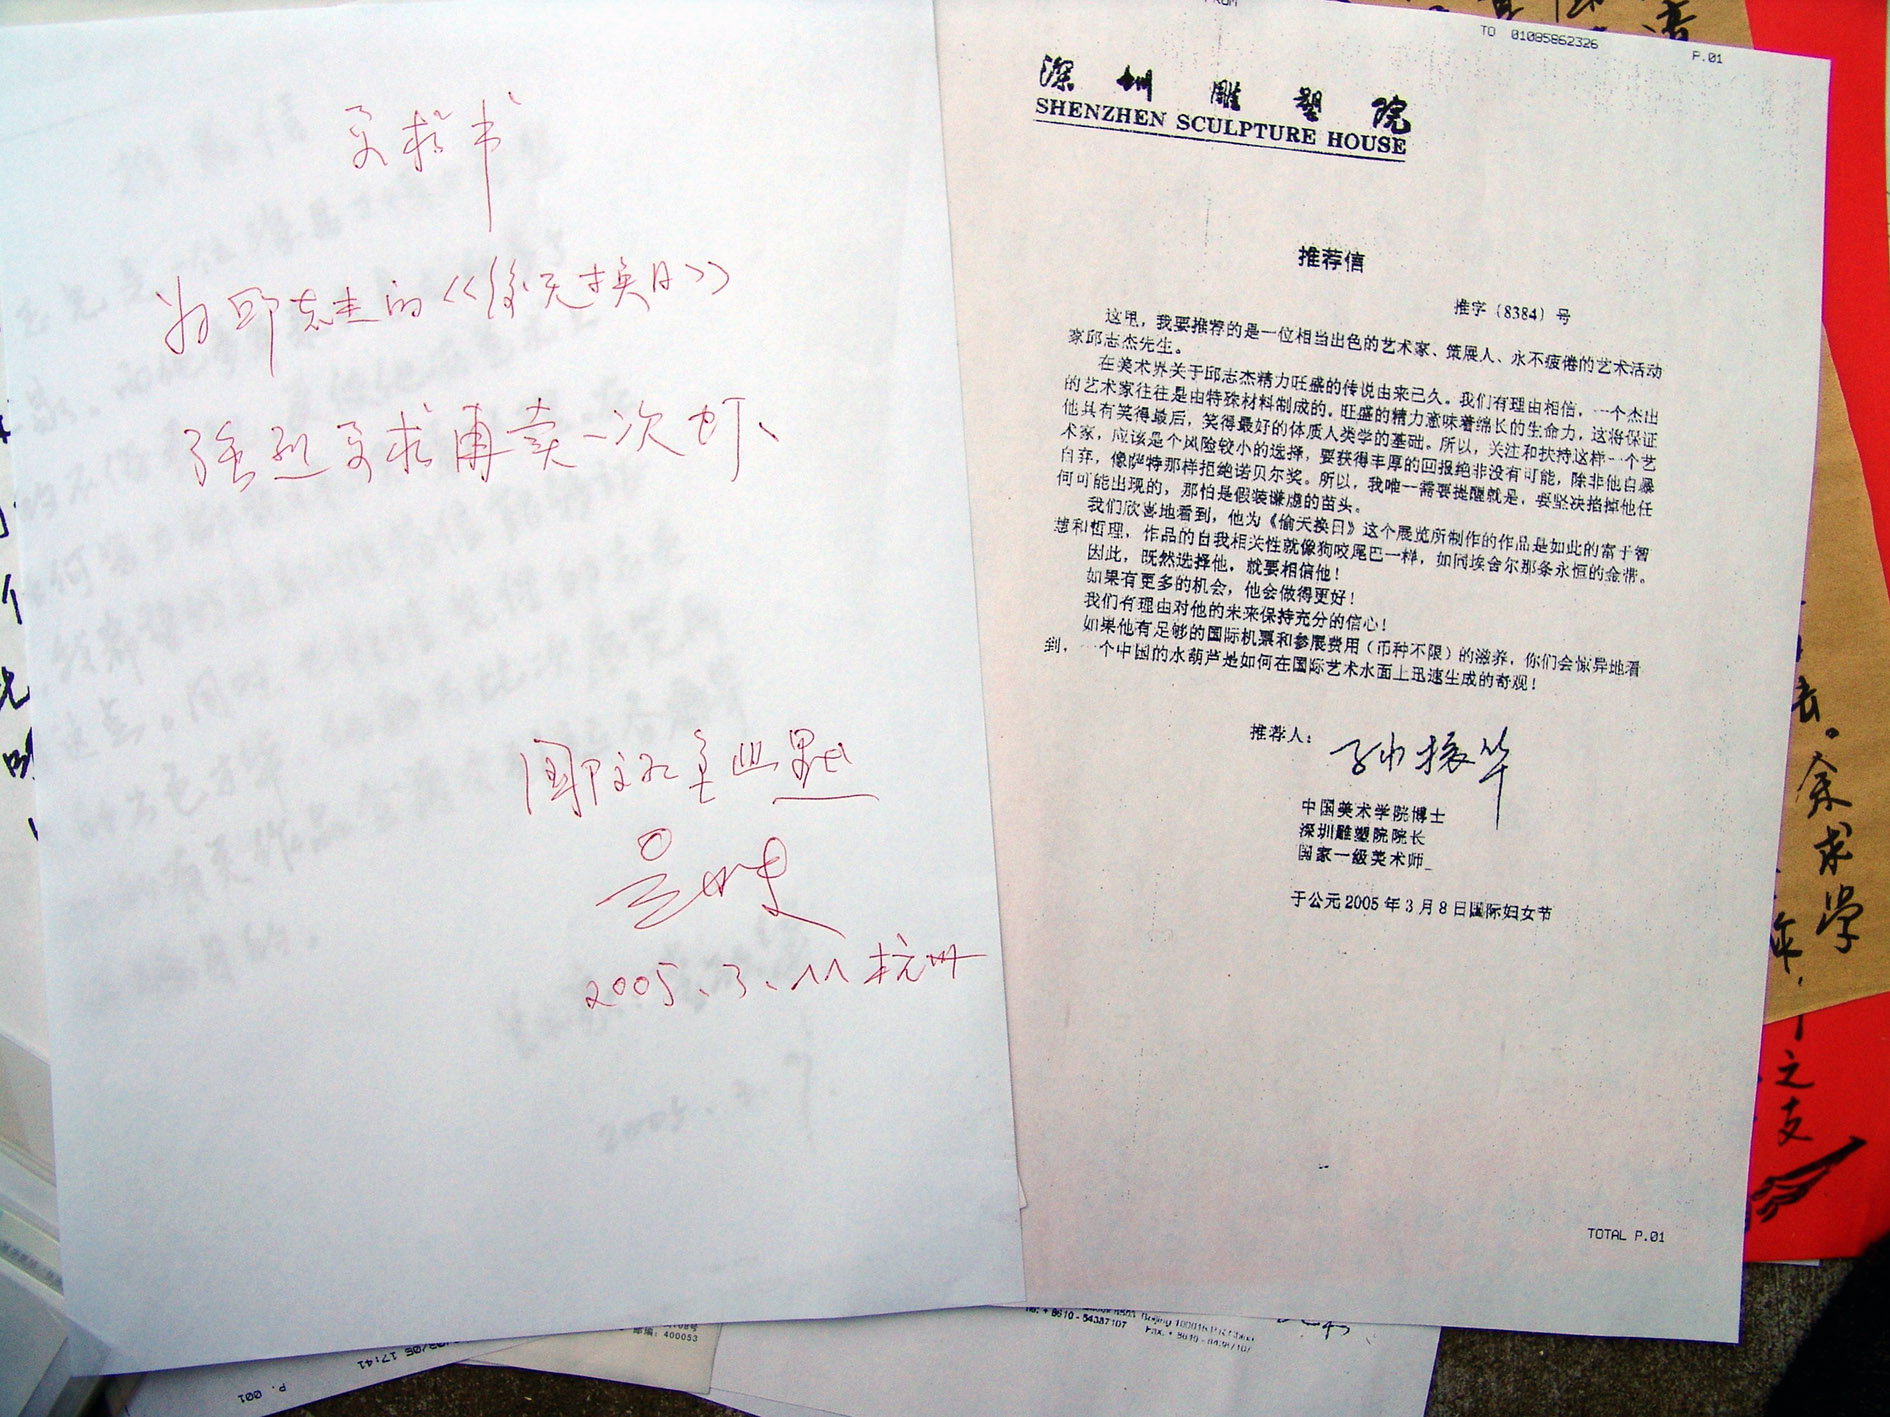 要求书
为邱志杰的《偷天换日》
强烈要求再卖一次灯、
2005.3.11 杭州
TO 01085862326
P.01
深圳雕塑院
SHENZHEN SCULPTURE HOUSE
推荐信
推字（8384）号
这里，我要推荐的是一位相当出色的艺术家、策展人、永不疲倦的艺术活动
家邱志杰先生。
在美术界关于邱志杰精力旺盛的传说由来已久。我们有理由相信，一个杰出
的艺术家往往是由特殊材料制成的。旺盛的精力意味着绵长的生命力，这将保证
他具有笑得最后，笑得最好的体质人类学的基础。所以，关注和扶持这样一个艺
术家，应该是个风险较小的选择，要获得丰厚的回报绝非没有可能，除非他自暴
自弃，像萨特那样拒绝诺贝尔奖。所以，我唯一需要提醒就是，要坚决掐掉他任
何可能出现的，那怕是假装谦虚的苗头。
我们欣喜地看到，他为《偷天换日》这个展览所制作的作品是如此的富于智
慧和哲理，作品的自我相关性就像狗咬尾巴一样，如同埃舍尔那条永恒的金带。
因此，既然选择他，就要相信他！
如果有更多的机会，他会做得更好！
我们有理由对他的未来保持充分的信心！
如果他有足够的国际机票和参展费用（币种不限）的滋养，你们会惊异地看
到，一个中国的水葫芦是如何在国际艺术水面上迅速生成的奇观！
推荐人：孙振华
中国美术学院博士
深圳雕塑院院长
国家一级美术师
于公元2005年3月8日国际妇女节
TOTAL P.01
余求学
之支
邮编：400053
17:41
P. 001